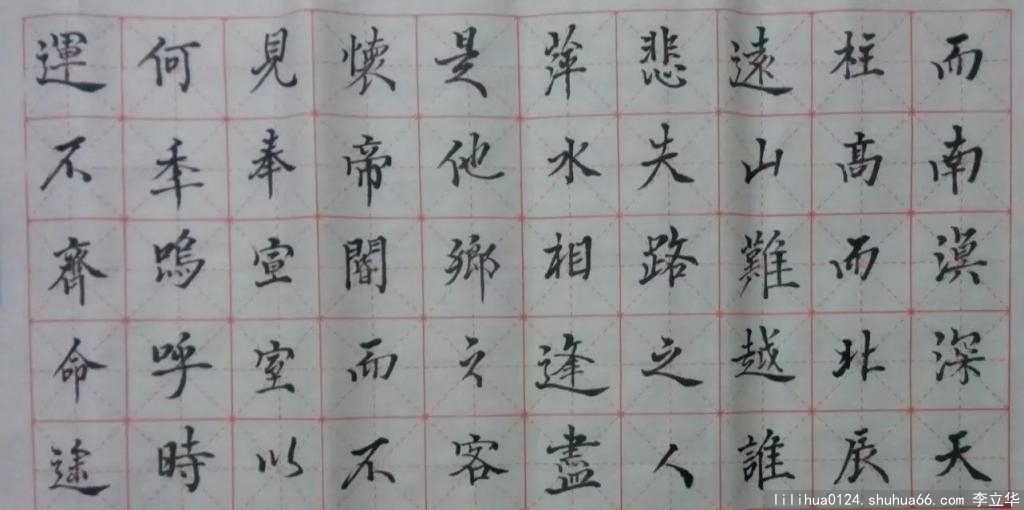 而南溟深天
柱髙而北辰
遠山難越誰
悲失路之人
萍水相逢盡
是他鄉之客
懷帝閽而不
見奉宣室以
何秊嗚呼時
運不齊命途
lilihua0124.shuhua66.com 李立华